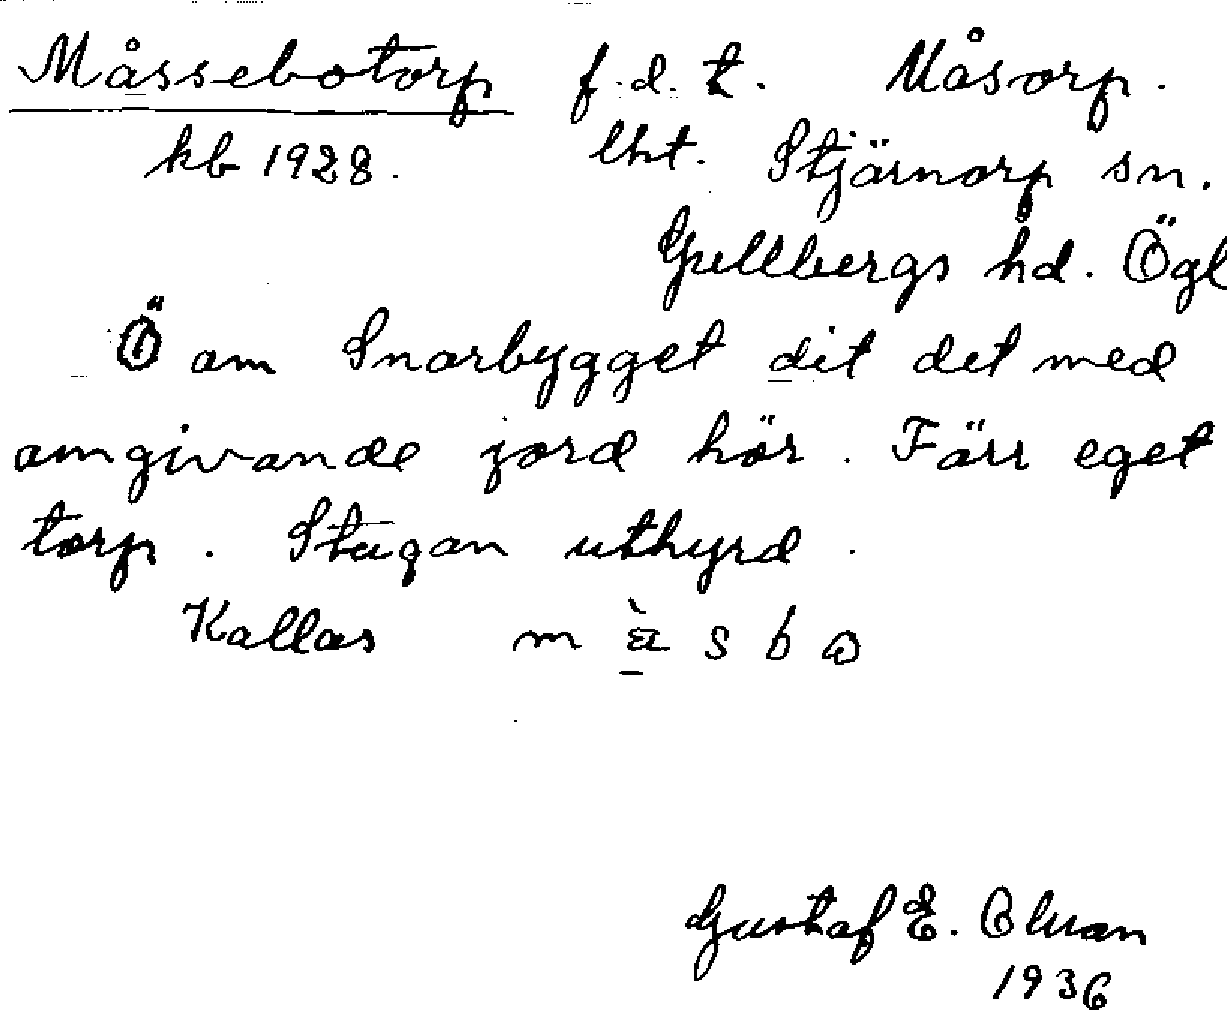 Måssebotorp f.d.t. Måsorp.
kb 1928. lht. Stjärnorp sn.
Gullbergs hd. Ögl
Ö om Snorbygget dit det med
omgivande jord hör. Förr eget
torp. Stugan uthyrd.
Kallas m s b
Gustaf E.
1936